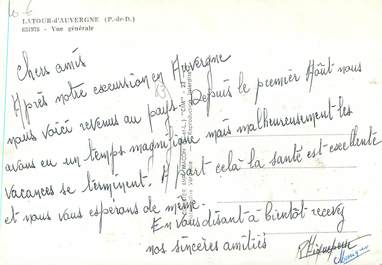 10-6
LATOUR-d'AUVERGNE (P.-de-D.)
631973 - Vue générale
Chers amis
Après notre excursion en Auvergne
nous voici revenus au pays. Depuis le premier Août nous
avons eu un temps magnifique mais malheureusement les
vacances se terminent. A part celà la santé est excellente
et nous vous espérons de même.
En vous disant à bientôt recevez
nos sincères amitiés